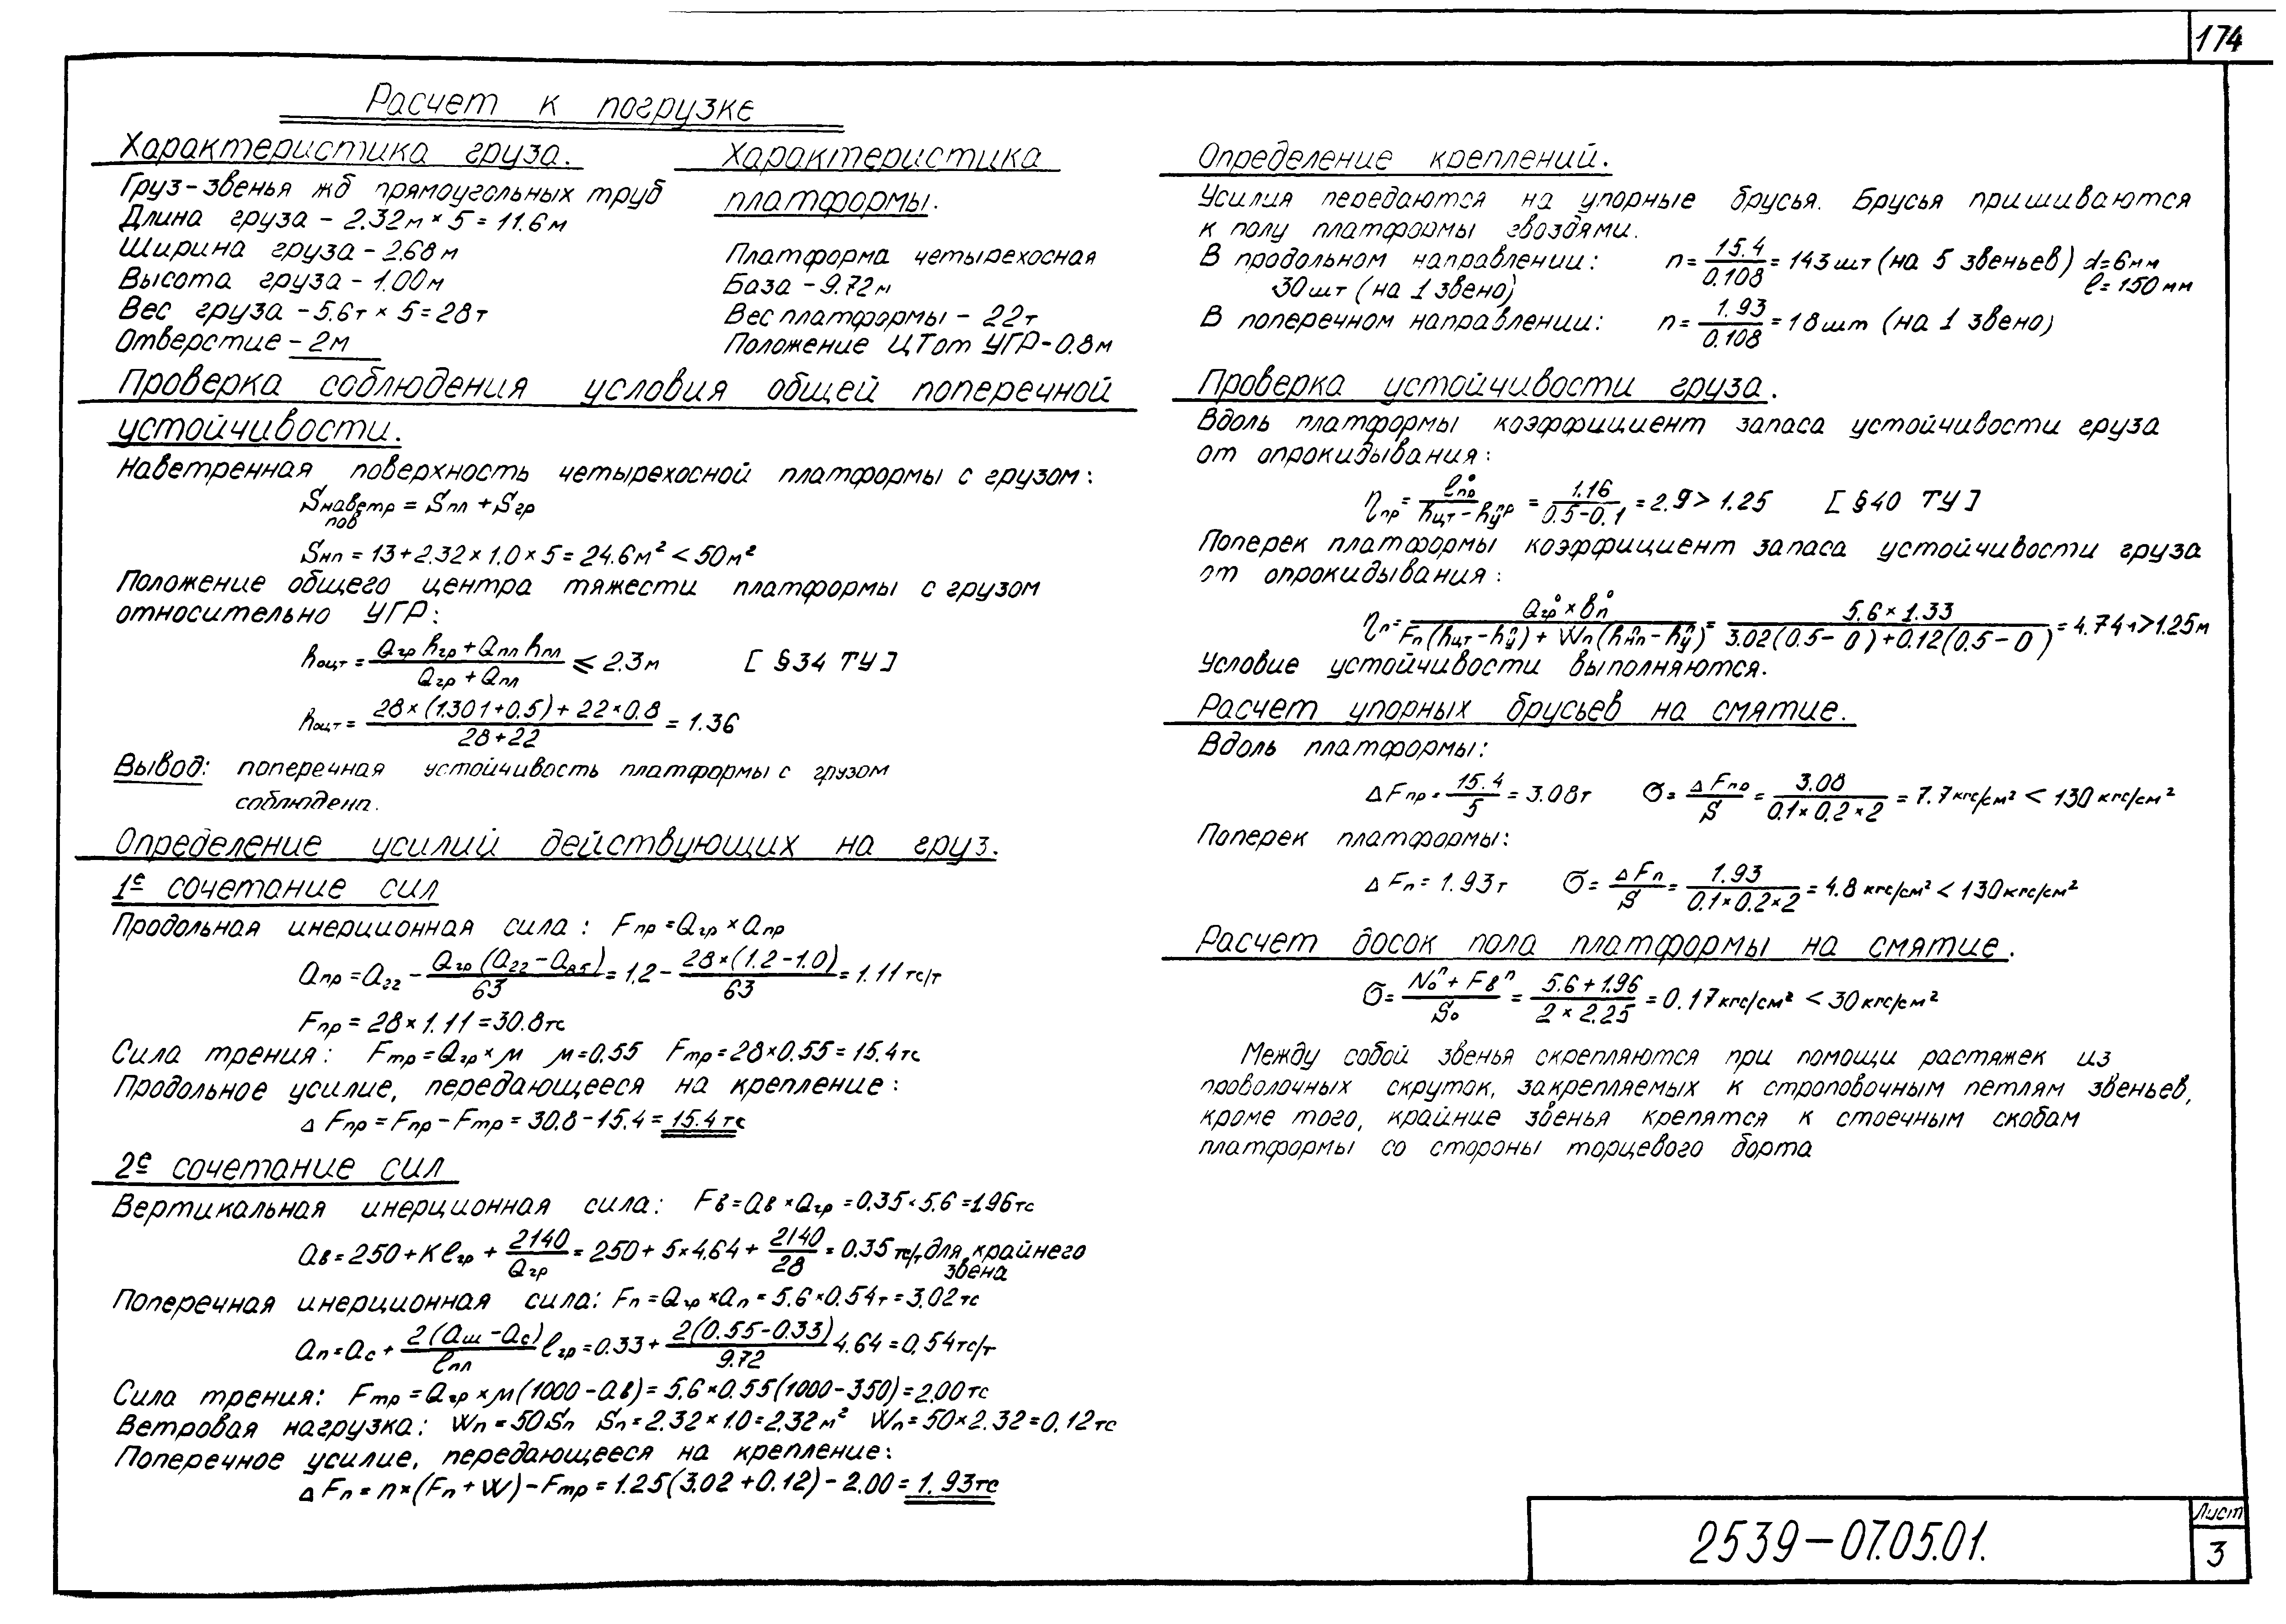 174
Расчет к погрузке
Характеристика груза.
Груз-звенья жб прямоугольных труб
Длина груза - 2.32м × 5 = 11.6м
Ширина груза - 2.68м
Высота груза - 1.00м
Вес груза - 5.6т × 5 = 28т
Отверстие - 2м
Характеристика
платформы.
Платформа четырехосная
База - 9.72м
Вес платформы - 22т
Положение ЦТ от УГР - 0.8м
Проверка соблюдения условия общей поперечной
устойчивости.
Наветренная поверхность четырехосной платформы с грузом:
Sнаветр пов = Sпл + Sгр
Sнп = 13 + 2.32 × 1.0 × 5 = 24.6м² < 50м²
Положение общего центра тяжести платформы с грузом
относительно УГР:
hоцт = (Qгр hгр + Qпл hпл) / (Qгр + Qпл) ⩽ 2.3м [ §34 ТУ ]
hоцт = (28 × (1.301 + 0.5) + 22 × 0.8) / (28 + 22) = 1.36
Вывод: поперечная устойчивость платформы с грузом
соблюдена.
Определение усилий действующих на груз.
1е сочетание сил
Продольная инерционная сила: Fпр = Qгр × апр
апр = а22 - Qгр (а22 - а85) / 63 = 1.2 - 28 × (1.2 - 1.0) / 63 = 1.11 тс/т
Fпр = 28 × 1.11 = 30.8тс
Сила трения: Fтр = Qгр × м м = 0.55 Fтр = 28 × 0.55 = 15.4тс
Продольное усилие, передающееся на крепление:
Δ Fпр = Fпр - Fтр = 30.8 - 15.4 = 15.4тс
2е сочетание сил
Вертикальная инерционная сила: Fв = ав × Qгр = 0.35 × 5.6 = 1.96тс
ав = 250 + Кℓгр + 2140 / Qгр = 250 + 5 × 4.64 + 2140 / 28 = 0.35 тс/т для крайнего
звена
Поперечная инерционная сила: Fп = Qгр × ап = 5.6 × 0.54т = 3.02тс
ап = ас + 2(аш - ас) / ℓпл ℓгр = 0.33 + 2(0.55 - 0.33) / 9.72 4.64 = 0.54тс/т
Сила трения: Fтр = Qгр × м(1000 - ав) = 5.6 × 0.55(1000 - 350) = 2.00тс
Ветровая нагрузка: Wп = 50Sп Sп = 2.32 × 1.0 = 2.32м² Wп = 50 × 2.32 = 0.12тс
Поперечное усилие, передающееся на крепление:
Δ Fп = n × (Fп + W) - Fтр = 1.25(3.02 + 0.12) - 2.00 = 1.93тс
Определение креплений.
Усилия передаются на упорные брусья. Брусья пришиваются
к полу платформы гвоздями.
В продольном направлении: n = 15.4 / 0.108 = 143шт (на 5 звеньев) d=6мм
30шт (на 1 звено) ℓ=150мм
В поперечном направлении: n = 1.93 / 0.108 = 18шт (на 1 звено)
Проверка устойчивости груза.
Вдоль платформы коэффициент запаса устойчивости груза
от опрокидывания:
ηпр = ℓ°пр / (hцт - hупр) = 1.16 / (0.5 - 0.1) = 2.9 > 1.25 [ §40 ТУ ]
Поперек платформы коэффициент запаса устойчивости груза
от опрокидывания:
ηп = Q°гр × в°п / (Fп (hцт - hпу) + Wп (hпнп - hпу)) = 5.6 × 1.33 / (3.02(0.5 - 0) + 0.12(0.5 - 0)) = 4.74м > 1.25м
Условие устойчивости выполняются.
Расчет упорных брусьев на смятие.
Вдоль платформы:
Δ Fпр = 15.4 / 5 = 3.08т σ = Δ Fпр / S = 3.08 / (0.1 × 0.2 × 2) = 7.7 кгс/см² < 130 кгс/см²
Поперек платформы:
Δ Fп = 1.93т σ = Δ Fп / S = 1.93 / (0.1 × 0.2 × 2) = 4.8 кгс/см² < 130кгс/см²
Расчет досок пола платформы на смятие.
σ = (Nоп + Fвп) / Sо = (5.6 + 1.96) / (2 × 2.25) = 0.17кгс/см² < 30кгс/см²
Между собой звенья скрепляются при помощи растяжек из
проволочных скруток, закрепляемых к строповочным петлям звеньев,
кроме того, крайние звенья крепятся к стоечным скобам
платформы со стороны торцевого борта
2539-07.05.01.
Лист
3